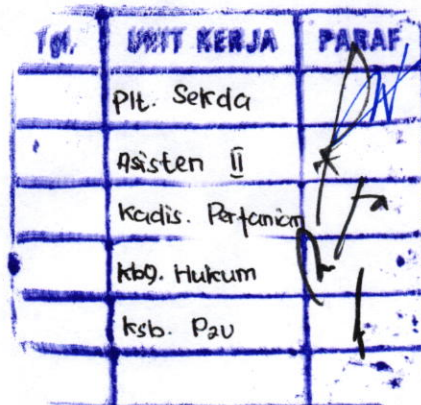 Tgl. UNIT KERJA PARAF
Plt. Sekda
Asisten II
Kadis. Pertanian
Kbg. Hukum
Ksb. P2U